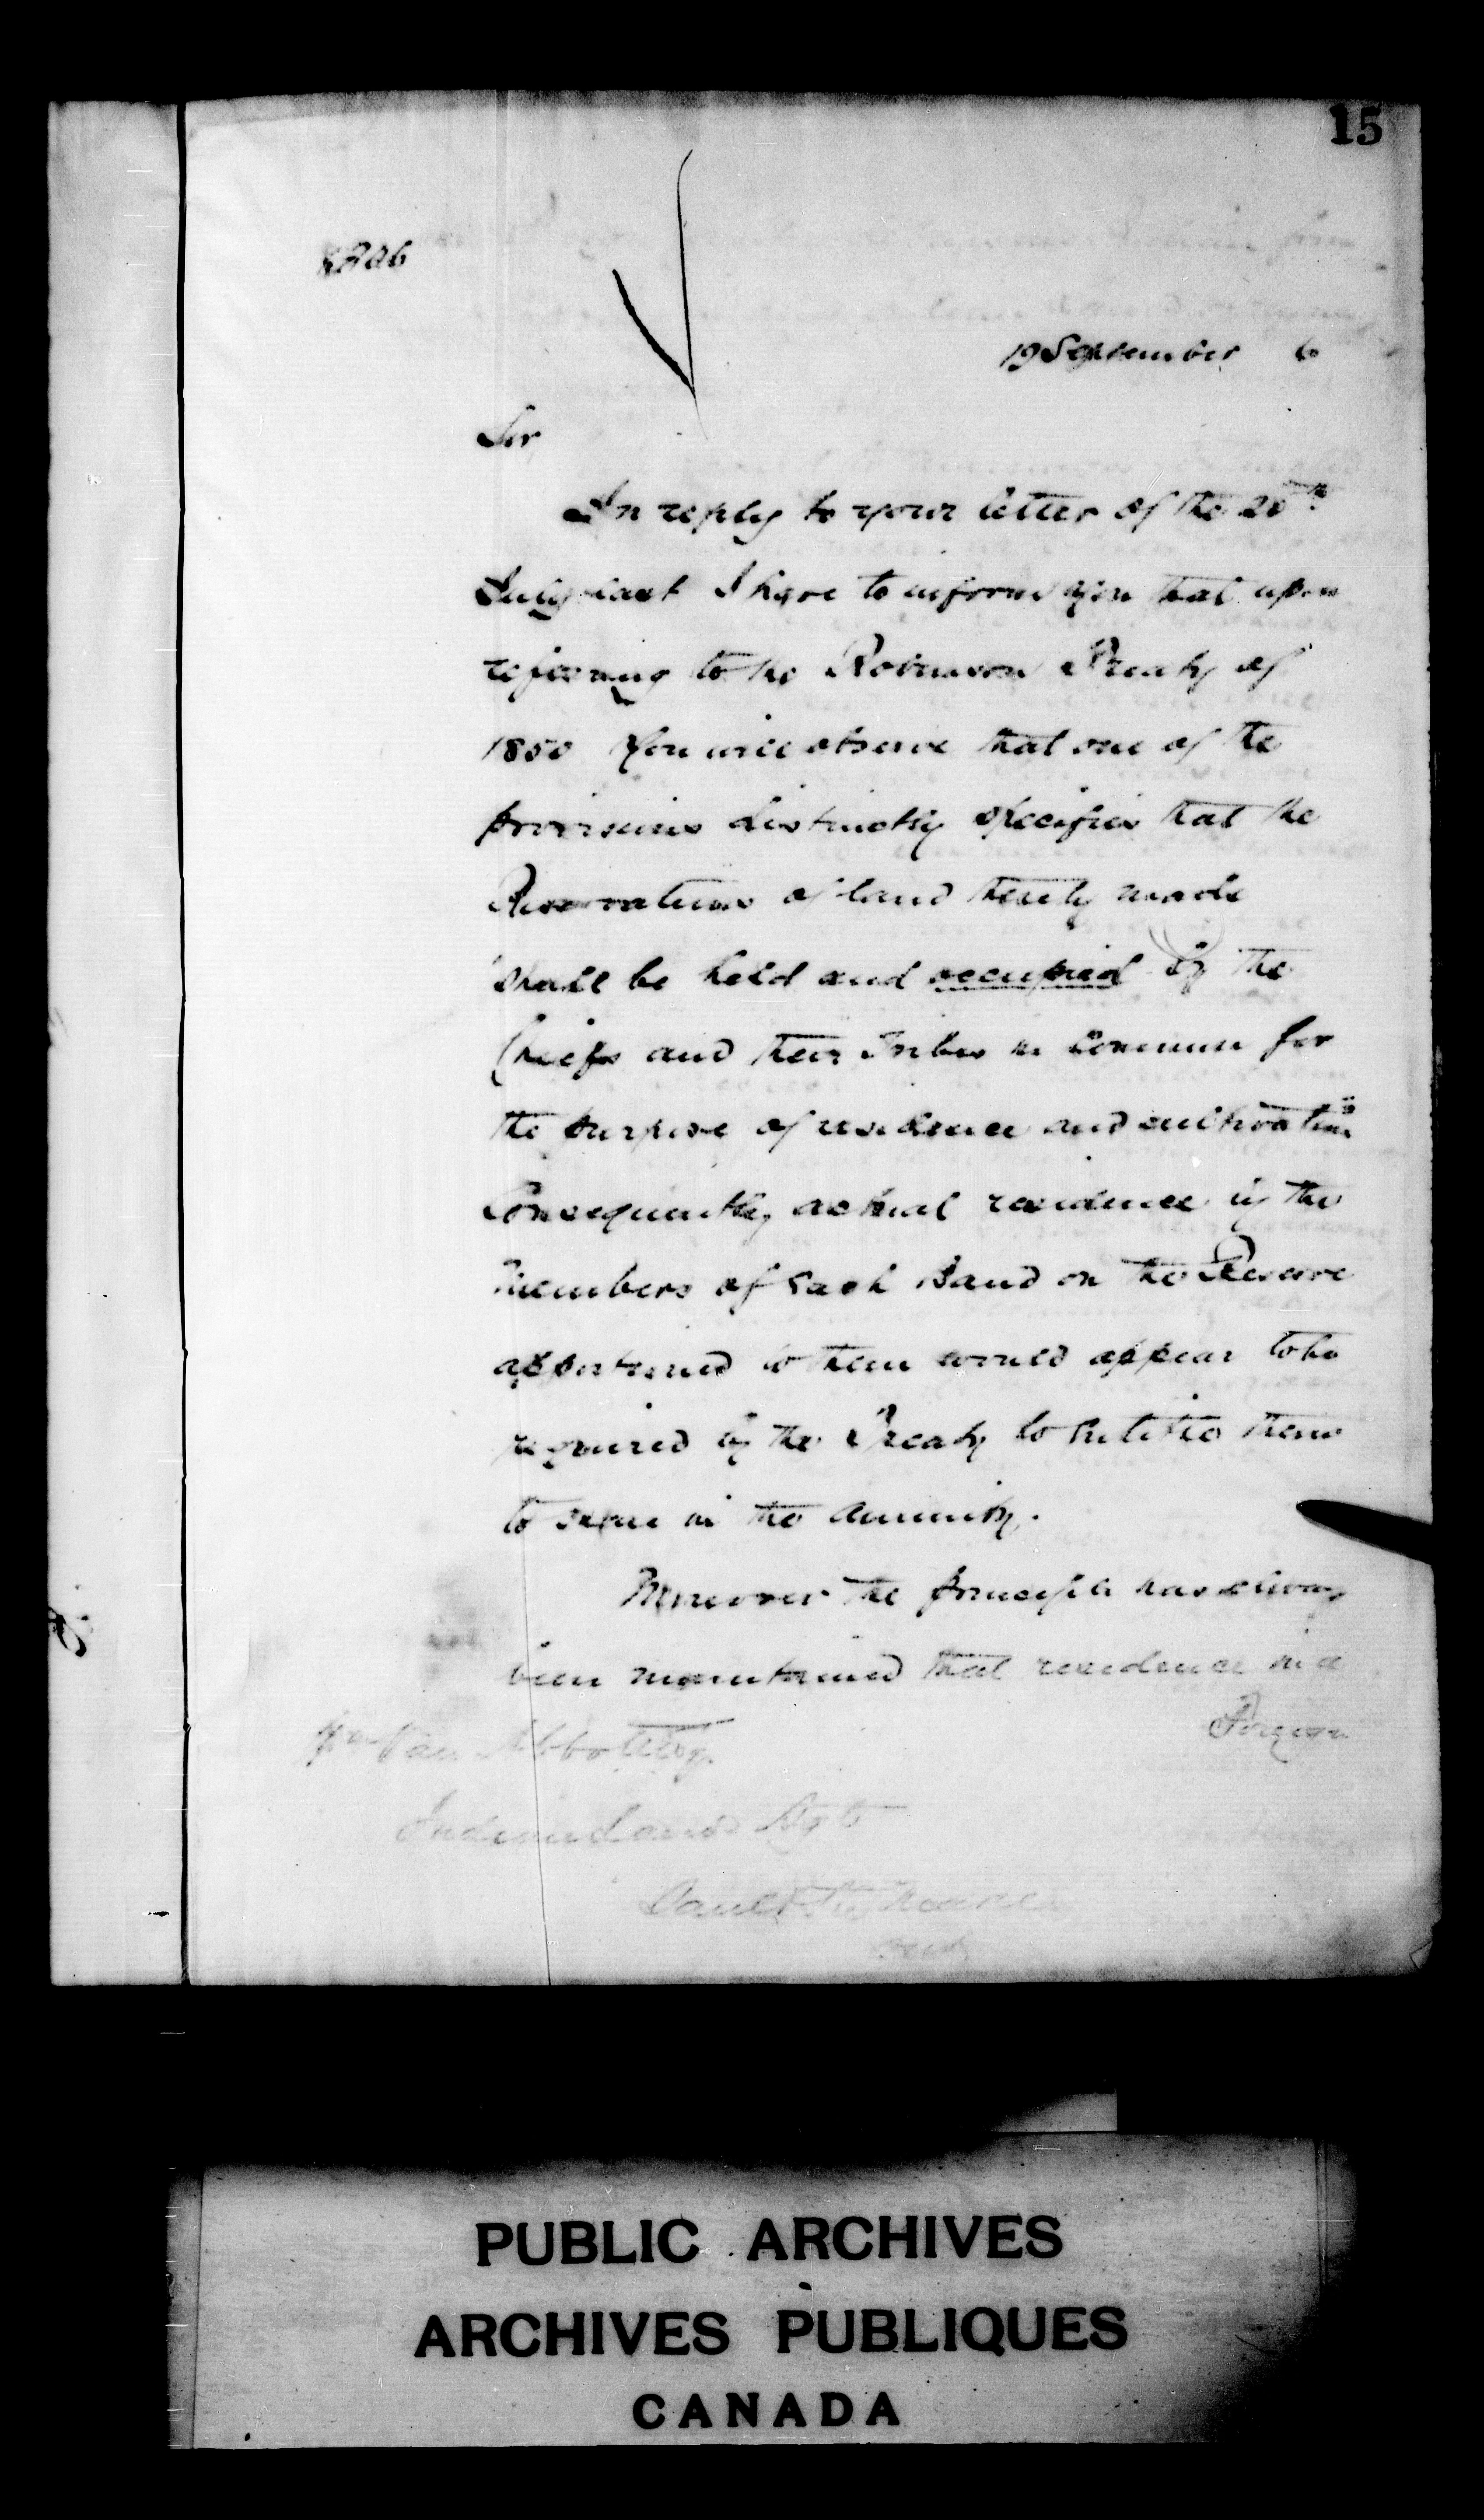 15
19 September 6
Sir
In reply to your letter of the 20th
July last I have to inform you that upon
referring to the Robinson Treaty of
1850 You will observe that one of the
provisions distinctly specifies that the
Reservations of land thereby made
"shall be held and occupied by the
Chiefs and their Tribes in Common for
the purpose of residence and cultivation"
Consequently, actual residence by the
members of each Band on the Reserve
apportioned to them would appear to be
required by the Treaty to entitle them
to share in the Annuity.
Moreover the principle has always
been maintained that residence in a
Foreign
Wm Van Abbott Esq.
Indian Lands Agt
Sault Ste Marie
PUBLIC ARCHIVES
ARCHIVES PUBLIQUES
CANADA